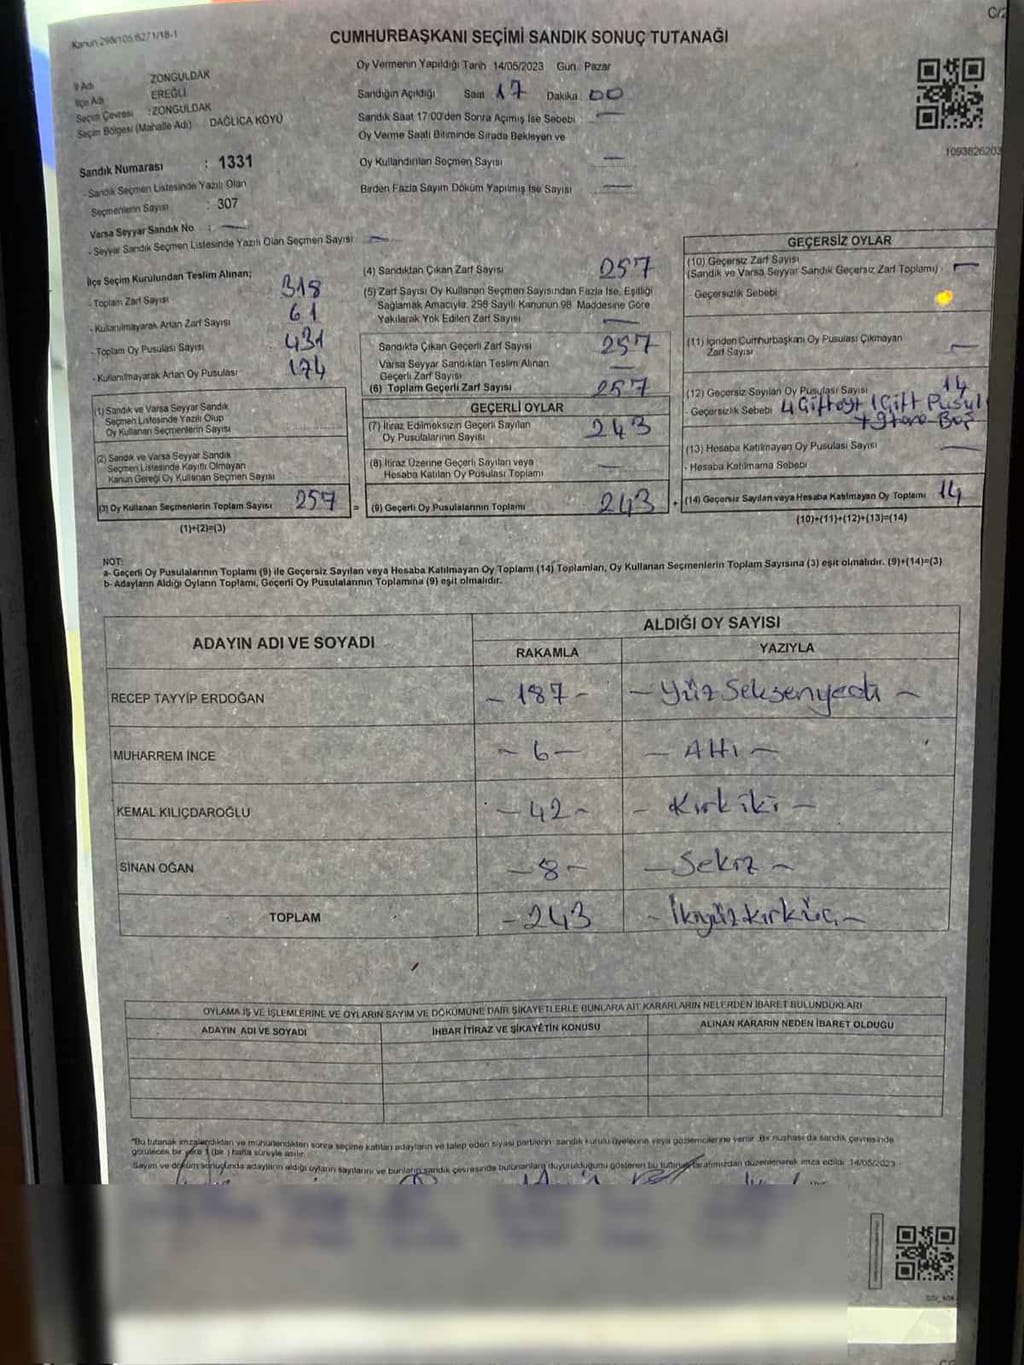 Kanun:298/105,6271/18-1
CUMHURBAŞKANI SEÇİMİ SANDIK SONUÇ TUTANAĞI
İl Adı ZONGULDAK
İlçe Adı EREĞLİ
Seçim Çevresi :ZONGULDAK
Seçim Bölgesi (Mahalle Adı) DAĞLICA KÖYÜ
Sandık Numarası : 1331
- Sandık Seçmen Listesinde Yazılı Olan
Seçmenlerin Sayısı : 307
Varsa Seyyar Sandık No : —
- Seyyar Sandık Seçmen Listesinde Yazılı Olan Seçmen Sayısı —
Oy Vermenin Yapıldığı Tarih 14/05/2023 Gün : Pazar
Sandığın Açıldığı Saat 17 Dakika 00
Sandık Saat 17:00'den Sonra Açımış İse Sebebi —
Oy Verme Saati Bitiminde Sırada Bekleyen ve
Oy Kullandırılan Seçmen Sayısı —
Birden Fazla Sayım Döküm Yapılmış İse Sayısı —
1093826203
İlçe Seçim Kurulundan Teslim Alınan;
- Toplam Zarf Sayısı 318
- Kullanılmayarak Artan Zarf Sayısı 61
- Toplam Oy Pusulası Sayısı 431
- Kullanılmayarak Artan Oy Pusulası 174
(1) Sandık ve Varsa Seyyar Sandık
Seçmen Listesinde Yazılı Olup
Oy Kullanan Seçmenlerin Sayısı
(2) Sandık ve Varsa Seyyar Sandık
Seçmen Listesinde Kayıtlı Olmayan
Kanun Gereği Oy Kullanan Seçmen Sayısı
(3) Oy Kullanan Seçmenlerin Toplam Sayısı 257
(1)+(2)=(3)
(4) Sandıktan Çıkan Zarf Sayısı 257
(5) Zarf Sayısı Oy Kullanan Seçmen Sayısından Fazla İse, Eşitliği
Sağlamak Amacıyla, 298 Sayılı Kanunun 98 Maddesine Göre
Yakılarak Yok Edilen Zarf Sayısı —
Sandıkta Çıkan Geçerli Zarf Sayısı 257
Varsa Seyyar Sandıktan Teslim Alınan
Geçerli Zarf Sayısı —
(6) Toplam Geçerli Zarf Sayısı 257
GEÇERLİ OYLAR
(7) İtiraz Edilmeksizin Geçerli Sayılan
Oy Pusulalarının Sayısı 243
(8) İtiraz Üzerine Geçerli Sayılan veya
Hesaba Katılan Oy Pusulası Toplamı —
= (9) Geçerli Oy Pusulalarının Toplamı 243
GEÇERSİZ OYLAR
(10) Geçersiz Zarf Sayısı
(Sandık ve Varsa Seyyar Sandık Geçersiz Zarf Toplamı) —
- Geçersizlik Sebebi
(11) İçinden Cumhurbaşkanı Oy Pusulası Çıkmayan
Zarf Sayısı —
(12) Geçersiz Sayılan Oy Pusulası Sayısı 14
- Geçersizlik Sebebi 4 Çift oy 1 Çift Pusul
Boş
(13) Hesaba Katılmayan Oy Pusulası Sayısı —
- Hesaba Katılmama Sebebi
+ (14) Geçersiz Sayılan veya Hesaba Katılmayan Oy Toplamı 14
(10)+(11)+(12)+(13)=(14)
NOT:
a- Geçerli Oy Pusulalarının Toplamı (9) ile Geçersiz Sayılan veya Hesaba Katılmayan Oy Toplamı (14) Toplamları, Oy Kullanan Seçmenlerin Toplam Sayısına (3) eşit olmalıdır. (9)+(14)=(3)
b- Adayların Aldığı Oyların Toplamı, Geçerli Oy Pusulalarının Toplamına (9) eşit olmalıdır.
ADAYIN ADI VE SOYADI
ALDIĞI OY SAYISI
RAKAMLA YAZIYLA
RECEP TAYYİP ERDOĞAN - 187 - - Yüz Seksenyedi -
MUHARREM İNCE - 6 - - Altı -
KEMAL KILIÇDAROĞLU - 42 - - Kırk iki -
SİNAN OĞAN - 8 - - Sekiz -
TOPLAM - 243 - İkiyüz kırküç -
OYLAMA İŞ VE İŞLEMLERİNE VE OYLARIN SAYIM VE DÖKÜMÜNE DAİR ŞİKAYETLERLE BUNLARA AİT KARARLARIN NELERDEN İBARET BULUNDUKLARI
ADAYIN ADI VE SOYADI İHBAR İTİRAZ VE ŞİKAYETİN KONUSU ALINAN KARARIN NEDEN İBARET OLDUĞU
"Bu tutanak imzalandıktan ve mühürlendikten sonra seçime katılan adayların ve talep eden siyasi partilerin sandık kurulu üyelerine veya gözlemcilerine verilir. Bir nushası da sandık çevresinde
görülecek bir yere 1 (bir ) hafta süreyle asılır.
Sayım ve döküm sonuçunda adayların aldığı oyların sayılarını ve bunların sandık çevresinde bulunanlara duyurulduğunu gösteren bu tutanak tarafımızdan düzenlenerek imza edildi. 14/05/2023